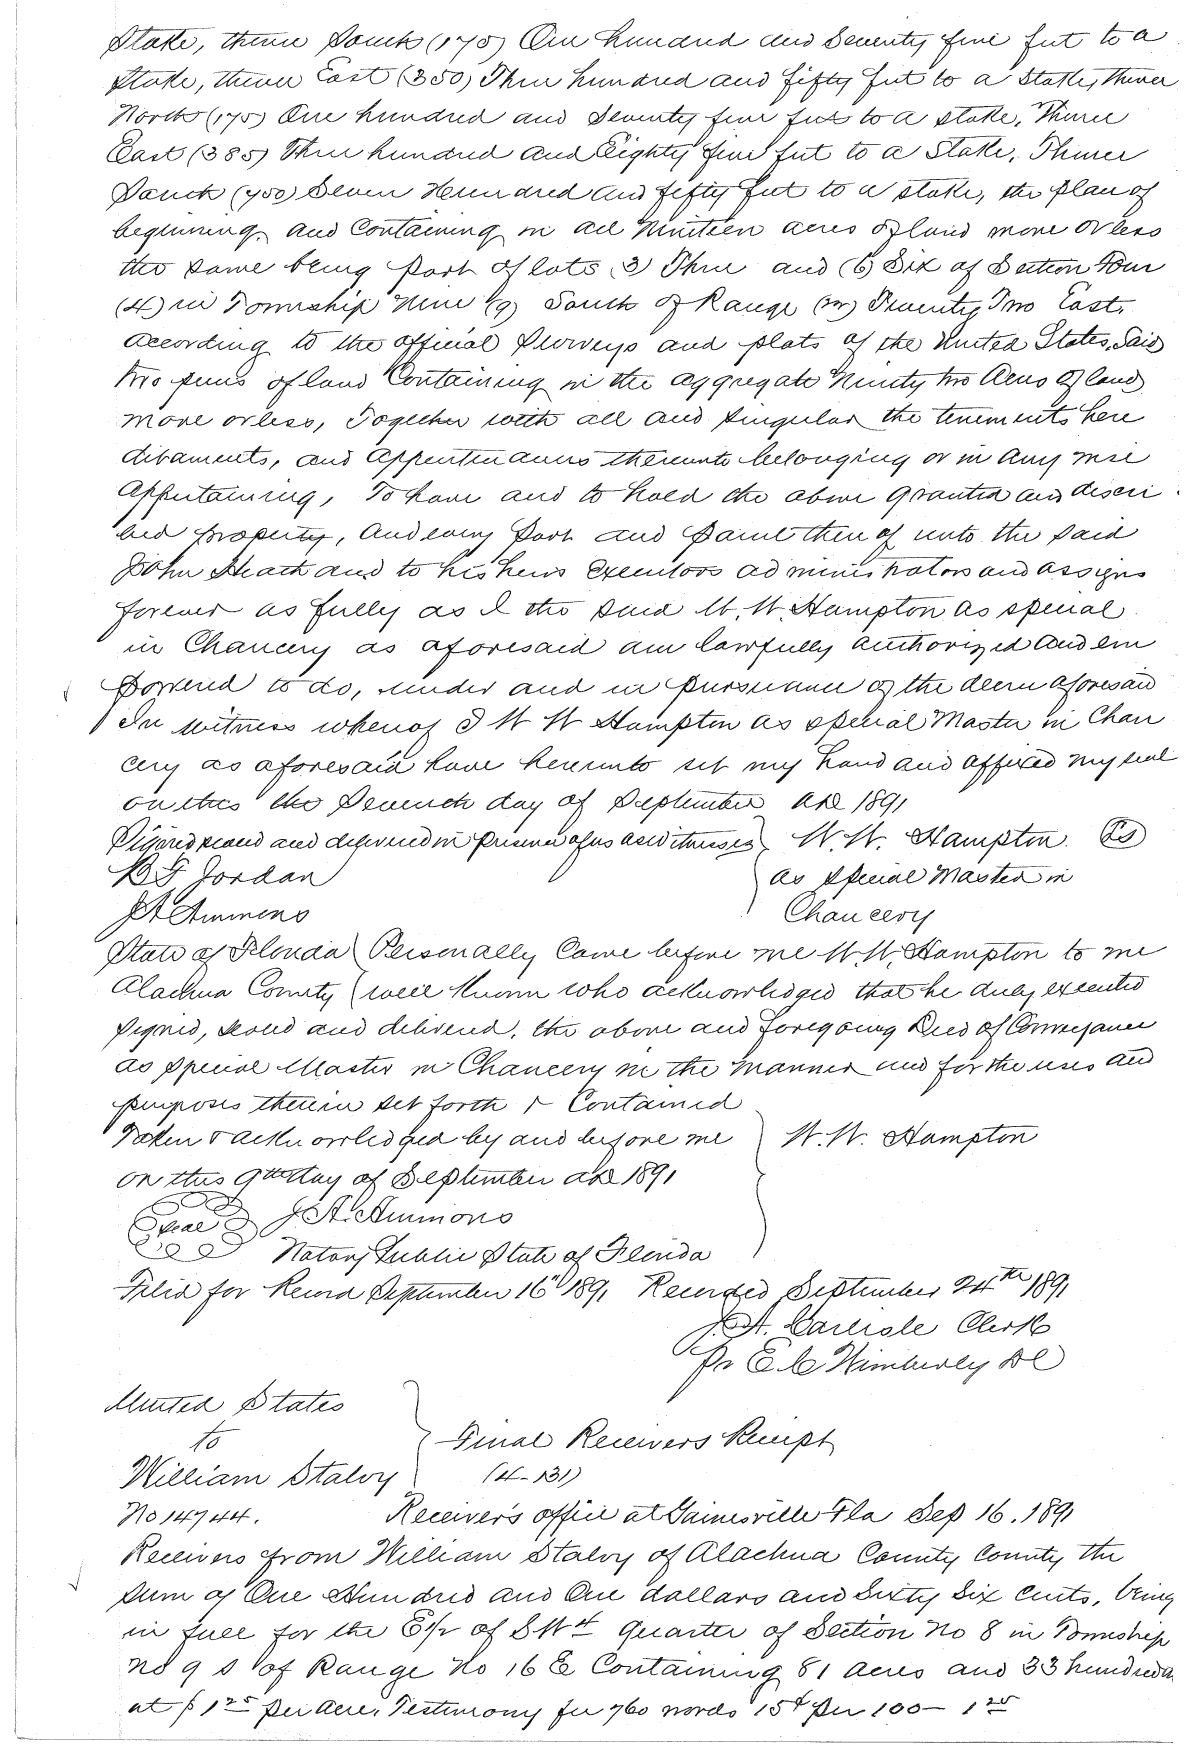 Stake, thence South (175) One hundred and Seventy five feet to a
Stake, thence East (350) Three hundred and fifty feet to a Stake, thence
North (175) One hundred and Seventy five feet to a stake, Thence
East (385) Three hundred and Eighty five feet to a Stake, Thence
South (750) Seven Hundred and fifty feet to a stake, the place of
beginning, and Containing in all Nineteen acres of land more or less
the same being part of lots (3) Three and (6) Six of Section Four
(4) in Township Nine (9) South of Range (22) Twenty Two East,
According to the official Surveys and plats of the United States, Said
two pieces of land Containing in the aggregate Ninety two Acres of land
more or less, Together with all and singular the tenements here
ditaments, and Appurtenances thereunto belonging or in any wise
Appertaining, To have and to hold the above granted and descri
bed property, And every part and parcel thereof unto the said
John Heath and to his heirs Executors administrators and assigns
forever as fully as I the said W. W. Hampton as special
in Chancery as aforesaid am lawfully authorized and em
powered to do, under and in pursuance of the decree aforesaid
In witness whereof I W W Hampton as special Master in Chan
cery as aforesaid have hereunto set my hand and affixed my seal
on this the Seventh day of September AD 1891
Signed sealed and delivered in presence of us as witnesses W. W. Hampton LS
B F Jordan as special Master in
J A Ammons Chancery
State of Florida Personally Came before me W. W. Hampton to me
Alachua County well known who acknowledged that he duly executed
signed, sealed and delivered, the above and foregoing Deed of Conveyance
as special Master in Chancery in the manner and for the uses and
purposes therein set forth & Contained
Taken & acknowledged by and before me W. W. Hampton
on this 9th day of September AD 1891
Seal J. A. Ammons
Notary Public State of Florida
Filed for Record September 16" 1891 Recorded September 24th 1891
J. A. Carlisle Clerk
Pr E C Wimberly DC
United States
to Final Receivers Receipt
William Stalvy (4-131)
No 14744. Receiver's office at Gainesville Fla Sep 16. 1891
Receivers from William Stalvy of Alachua County County the
sum of One Hundred and One dollars and Sixty Six Cents, being
in full for the E1/2 of S W 4 quarter of Section No 8 in Township
No 9 S of Range No 16 E Containing 81 acres and 33 hundreds
at $ 1 25 Per Acre, Testimony fee 760 words 15¢ per 100 — 1 25